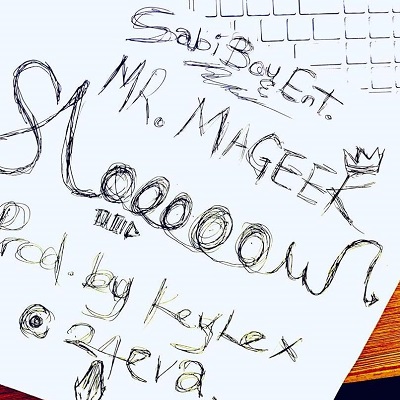 SabiBoy Ent.
MR. MAGEEK
Slooooown
Prod. by KeyLex
@ 24eva